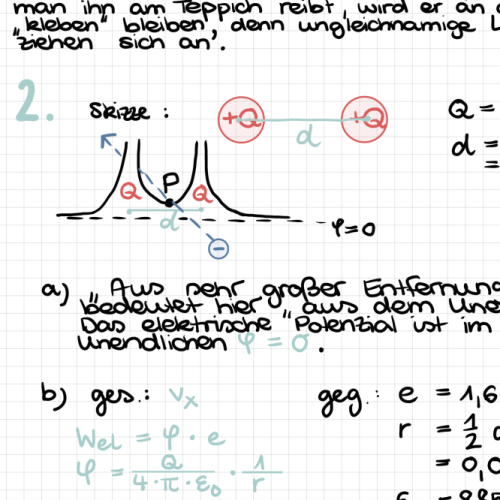 man ihn am Teppich reibt, wird er an
"kleben" bleiben, denn ungleichnamige
ziehen sich an".
2.
Skizze :
+Q
+Q
d
Q =
d =
=
Q
P
Q
d
φ=0
−
a) "Aus sehr großer Entfernun
bedeutet hier "aus dem Une
Das elektrische "Potenzial ist im
Unendlichen φ = 0 .
b) ges.: vₓ
geg.: e = 1,6
Wel = φ · e
r = 1/2
φ = Q/(4·π·ε₀) · 1/r
= 0,0